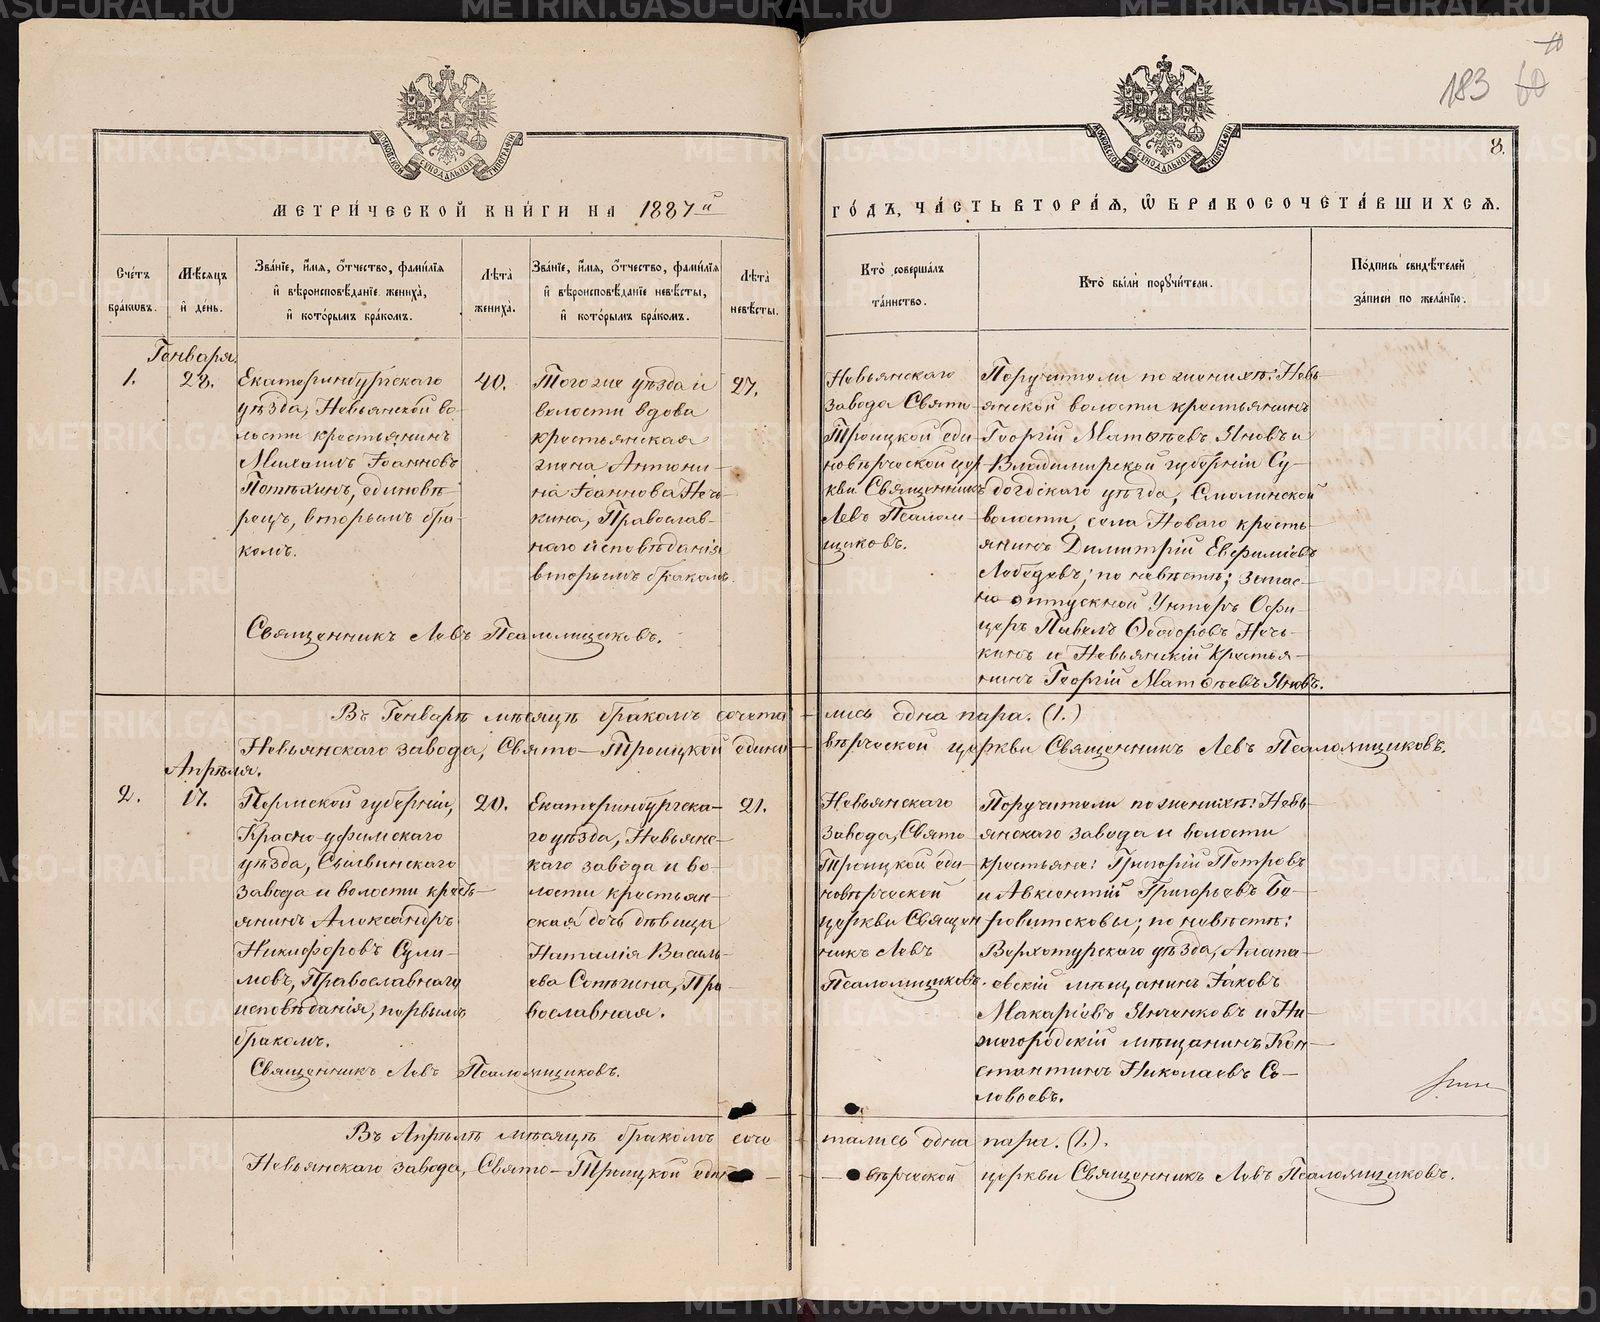 METRIKI.GASO-URAL.RU
183
8.
МОСКОВСКОЙ СѴНОДАЛЬНОЙ ТИПОГРАФІИ
МОСКОВСКОЙ СѴНОДАЛЬНОЙ ТИПОГРАФІИ
МЕТРИ́ЧЕСКОЙ КНИ́ГИ НА 1887й
ГО́ДЪ, ЧА́СТЬ ВТОРА́Я, Ѡ БРАКОСОЧЕТА́ВШИХСЯ.
Сче́тъ бра́кѡвъ.
Мѣ́сяцъ и҆ де́нь.
Зва́нїе, и҆́мя, ѻ҆́тчество, фами́лїя
и҆ вѣроисповѣ́данїе жениха̀,
и҆ кото́рымъ бра́комъ.
Лѣ́та жениха̀.
Зва́нїе, и҆́мя, ѻ҆́тчество, фами́лїя
и҆ вѣроисповѣ́данїе невѣ́сты,
и҆ кото́рымъ бра́комъ.
Лѣ́та невѣ́сты.
Кто̀ соверша́лъ
та́инство.
Кто̀ бы́ли порꙋчи́тели.
По́дпись свидѣ́телей
за́писи по жела́нїю.
Генваря.
1.
28.
Екатеринбургскаго
уѣзда, Невьянской во-
лости крестьянинъ
Михаилъ Іоанновъ
Потѣхинъ, единовѣ-
рецъ, вторымъ бра-
комъ.
40.
Того же уѣзда и
волости вдова
крестьянская
жена Антони-
на Іоаннова Нечь-
кина, Православ-
наго исповѣданія
вторымъ бракомъ.
27.
Невьянскаго
завода Свято
Троицкой еди-
новѣрческой цер-
кви Священникъ
Левъ Псалом-
щиковъ.
Поручители по женихѣ: Невь-
янской волости крестьянинъ
Георгій Матѳѣевъ Яновъ и
Владимирской губерніи Су-
догдскаго уѣзда, Смолинской
волости, села Новаго кресть-
янинъ Димитрій Евфиміевъ
Лебедевъ; по невѣстѣ; запас-
но отпускной Унтеръ Офи-
церъ Павелъ Ѳеодоровъ Нечь-
кинъ и Невьянскій крестья-
нинъ Георгій Матѳѣевъ Яновъ.
Священникъ Левъ Псаломщиковъ.
Въ Генварѣ мѣсяцѣ бракомъ сочета-лись одна пара. (1.)
Невьянскаго завода, Свято-Троицкой едино-вѣрческой церкви Священникъ Левъ Псаломщиковъ.
Апрѣля.
2.
17.
Пермской губерніи,
Красно-уфимскаго
уѣзда, Сылвинскаго
завода и волости кресть-
янинъ Александръ
Никифоровъ Сули-
мовъ, Православнаго
исповѣданія, первымъ
бракомъ.
20.
Екатеринбургска-
го уѣзда, Невьянс-
каго завода и во-
лости крестьян-
ская дочь дѣвица
Наталія Василь-
ева Сопѣгина, Пра-
вославная.
21.
Невьянскаго
завода, Свято
Троицкой еди-
новѣрческой
церкви Священ-
никъ Левъ
Псаломщиковъ.
Поручители по женихѣ: Невь-
янскаго завода и волости
крестьяне: Григорій Петровъ
и Авксентій Григорьевъ Бо-
ровитсковы; по невѣстѣ:
Верхотурскаго уѣзда, Алапа-
евскій мѣщанинъ Іаковъ
Макаріевъ Янченковъ и Ни-
жегородскій мѣщанинъ Кон-
стантинъ Николаевъ Со-
ловьевъ.
Священникъ Левъ Псаломщиковъ.
Въ Апрѣлѣ мѣсяцѣ бракомъ соче-тались одна пара. (1.).
Невьянскаго завода, Свято-Троицкой едино-вѣрческой церкви Священникъ Левъ Псаломщиковъ.